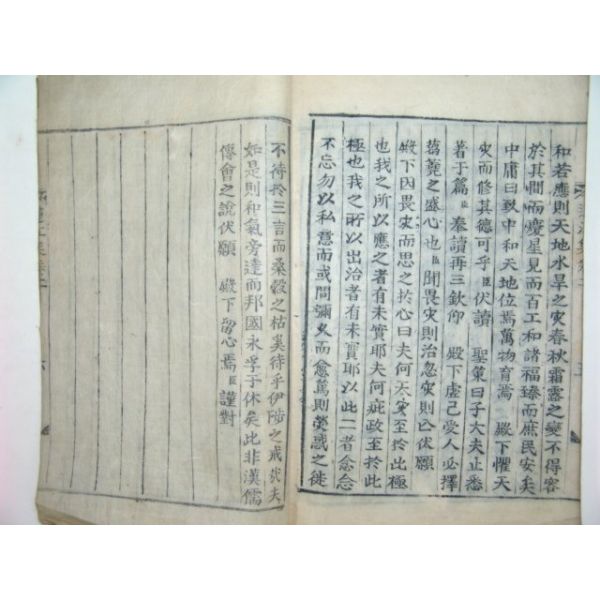 和若應則天地水旱之灾春秋霜露之變不得容
於其間而慶星見而百工和諸福臻而庶民安矣
中庸曰致中和天地位焉萬物育焉 殿下懼天
灾而修其德可乎臣伏讀 聖策曰子大夫止悉
著于篇臣奉讀再三欽仰 殿下虛己愛人必擇
蒭蕘之盛心也臣聞畏灾則治忽灾則亡伏願
殿下因畏灾而思之於心曰夫何天灾至於此極
也我之所以應之者有未實耶夫何疵政至於此
極也我之所以出治者有未實耶以此二者念念
不忘勿以私意而或間彌久而愈篤則熒惑之徙
不待於三言而桑穀之枯奚待乎伊陟之戒哉夫
如是則和氣旁達而邦國永孚于休矣此非漢儒
傅會之說伏願 殿下留心焉臣謹對